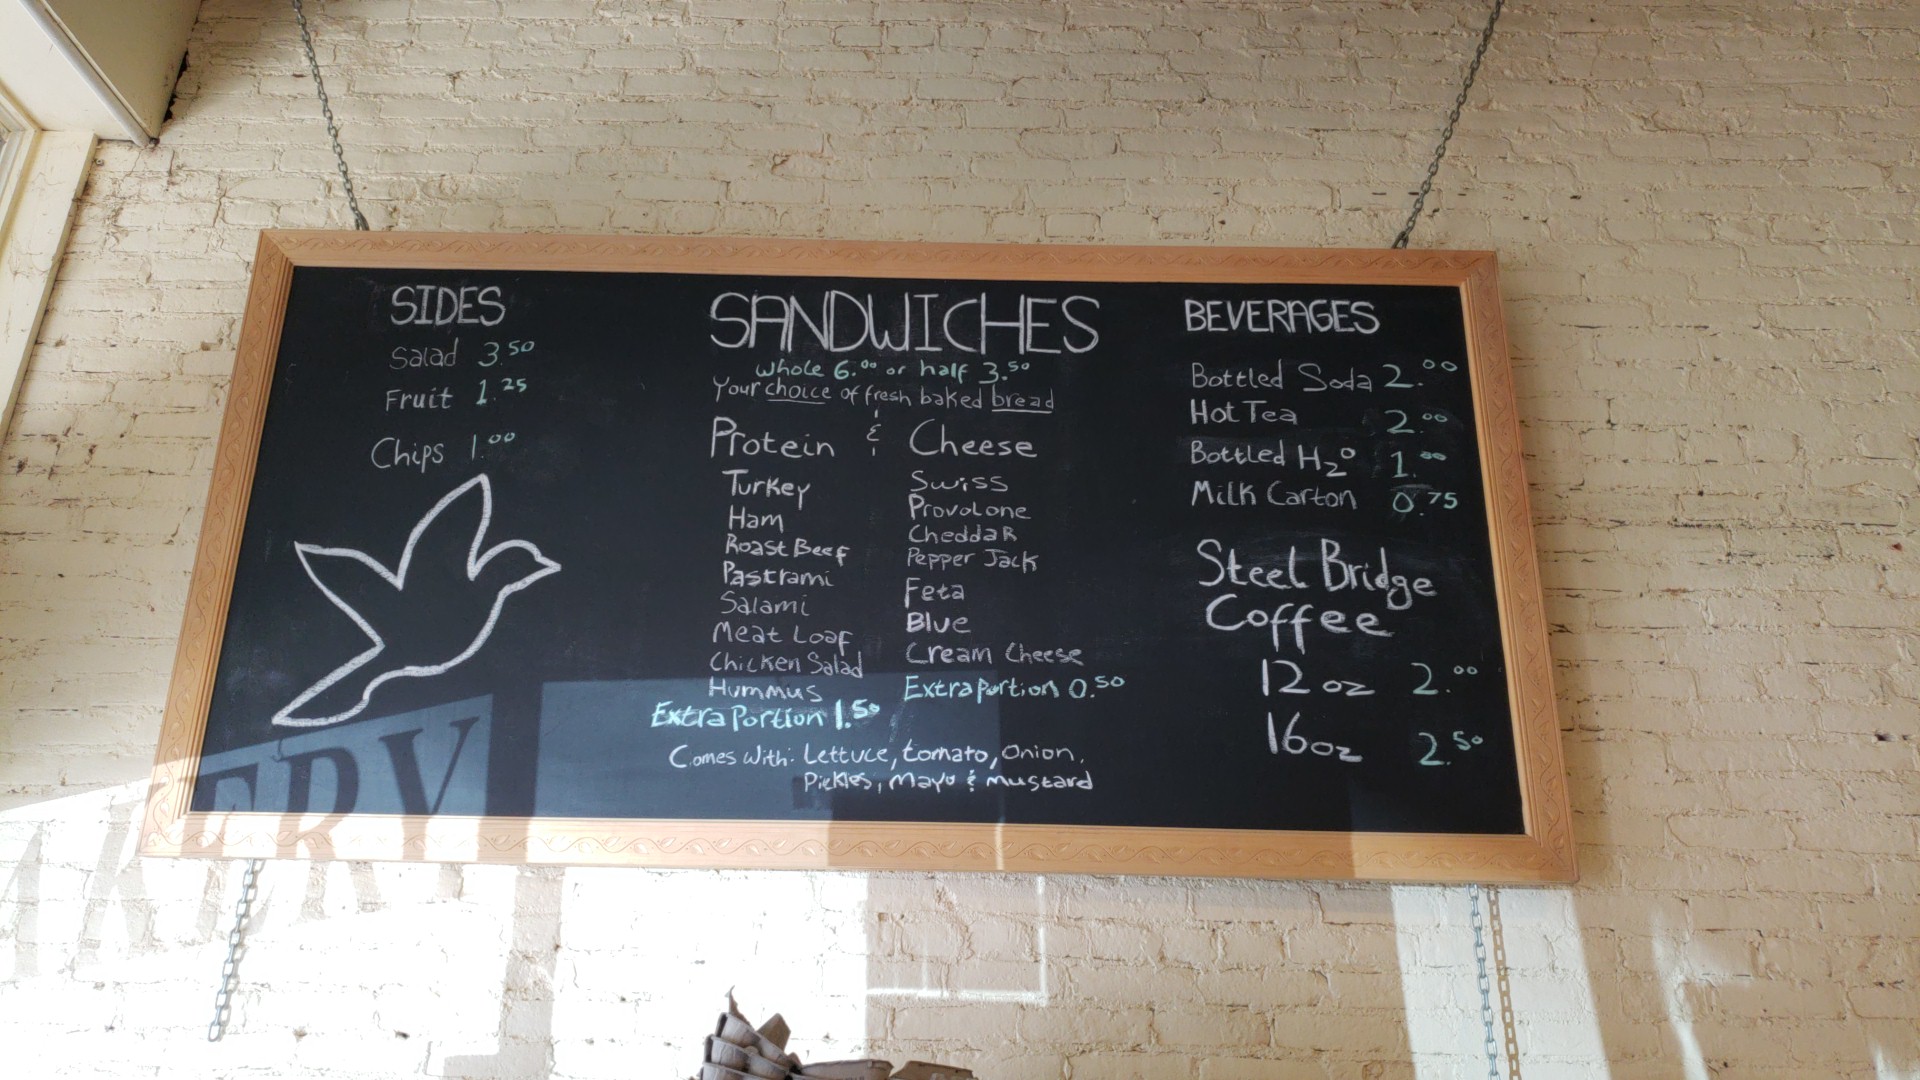 SIDES
Salad 3.50
Fruit 1.25
Chips 1.00
SANDWICHES
Whole 6.00 or half 3.50
Your choice of fresh baked bread
Protein & Cheese
Turkey
Ham
Roast Beef
Pastrami
Salami
Meat Loaf
Chicken Salad
Hummus
Extra Portion 1.50
Swiss
Provolone
Cheddar
Pepper Jack
Feta
Blue
Cream Cheese
Extra Portion 0.50
Comes With: Lettuce, tomato, Onion,
Pickles, Mayo & Mustard
BEVERAGES
Bottled Soda 2.00
Hot Tea 2.00
Bottled H2O 1.00
Milk Carton 0.75
Steel Bridge
Coffee
12 oz 2.00
16 oz 2.50